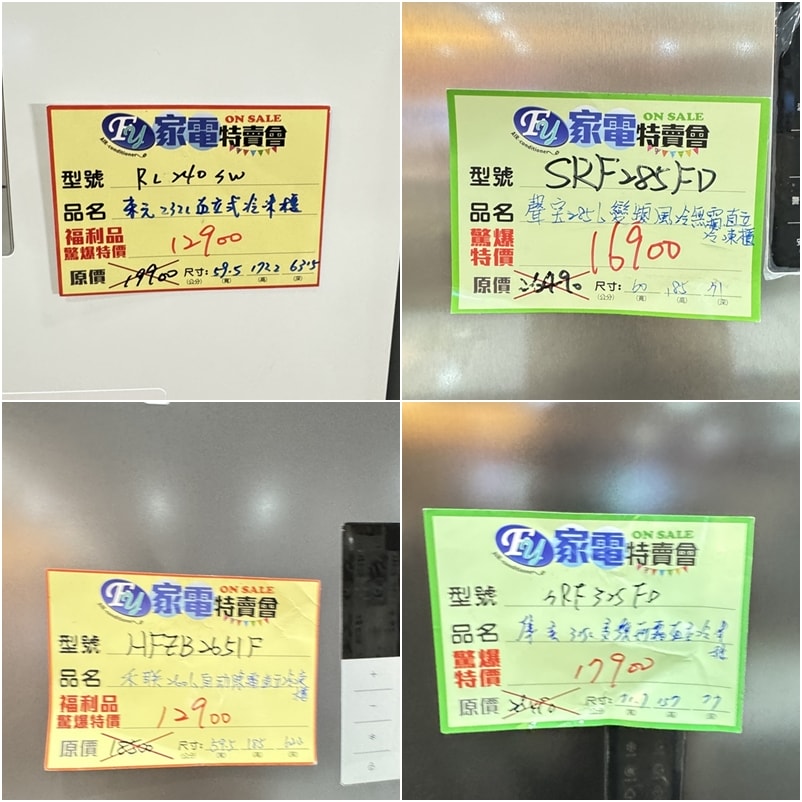 Fy 家電特賣會 ON SALE
Air-conditioner
型號 RL240SW
品名 東元232L直立式冷凍櫃
福利品
驚爆特價 12900
原價 19900 尺寸: 59.5 172.2 63.5
(公分) (寬) (高) (深)
Fy 家電特賣會 ON SALE
Air-conditioner
型號 SRF285FD
品名 聲宝285L變頻風冷無霜直立冷凍櫃
驚爆
特價 16900
原價 尺寸: 60 185 71
(公分) (寬) (高) (深)
Fy 家電特賣會 ON SALE
Air-conditioner
型號 HFZB2651F
品名 禾聯260L自動除霜直立冷凍櫃
福利品
驚爆特價 12900
原價 18500 尺寸: 59.5 185
(公分) (寬) (高) (深)
Fy 家電特賣會 ON SALE
型號 SRF325FD
品名
驚爆
特價 17900
原價 尺寸: 157 77
(公分) (寬) (高) (深)